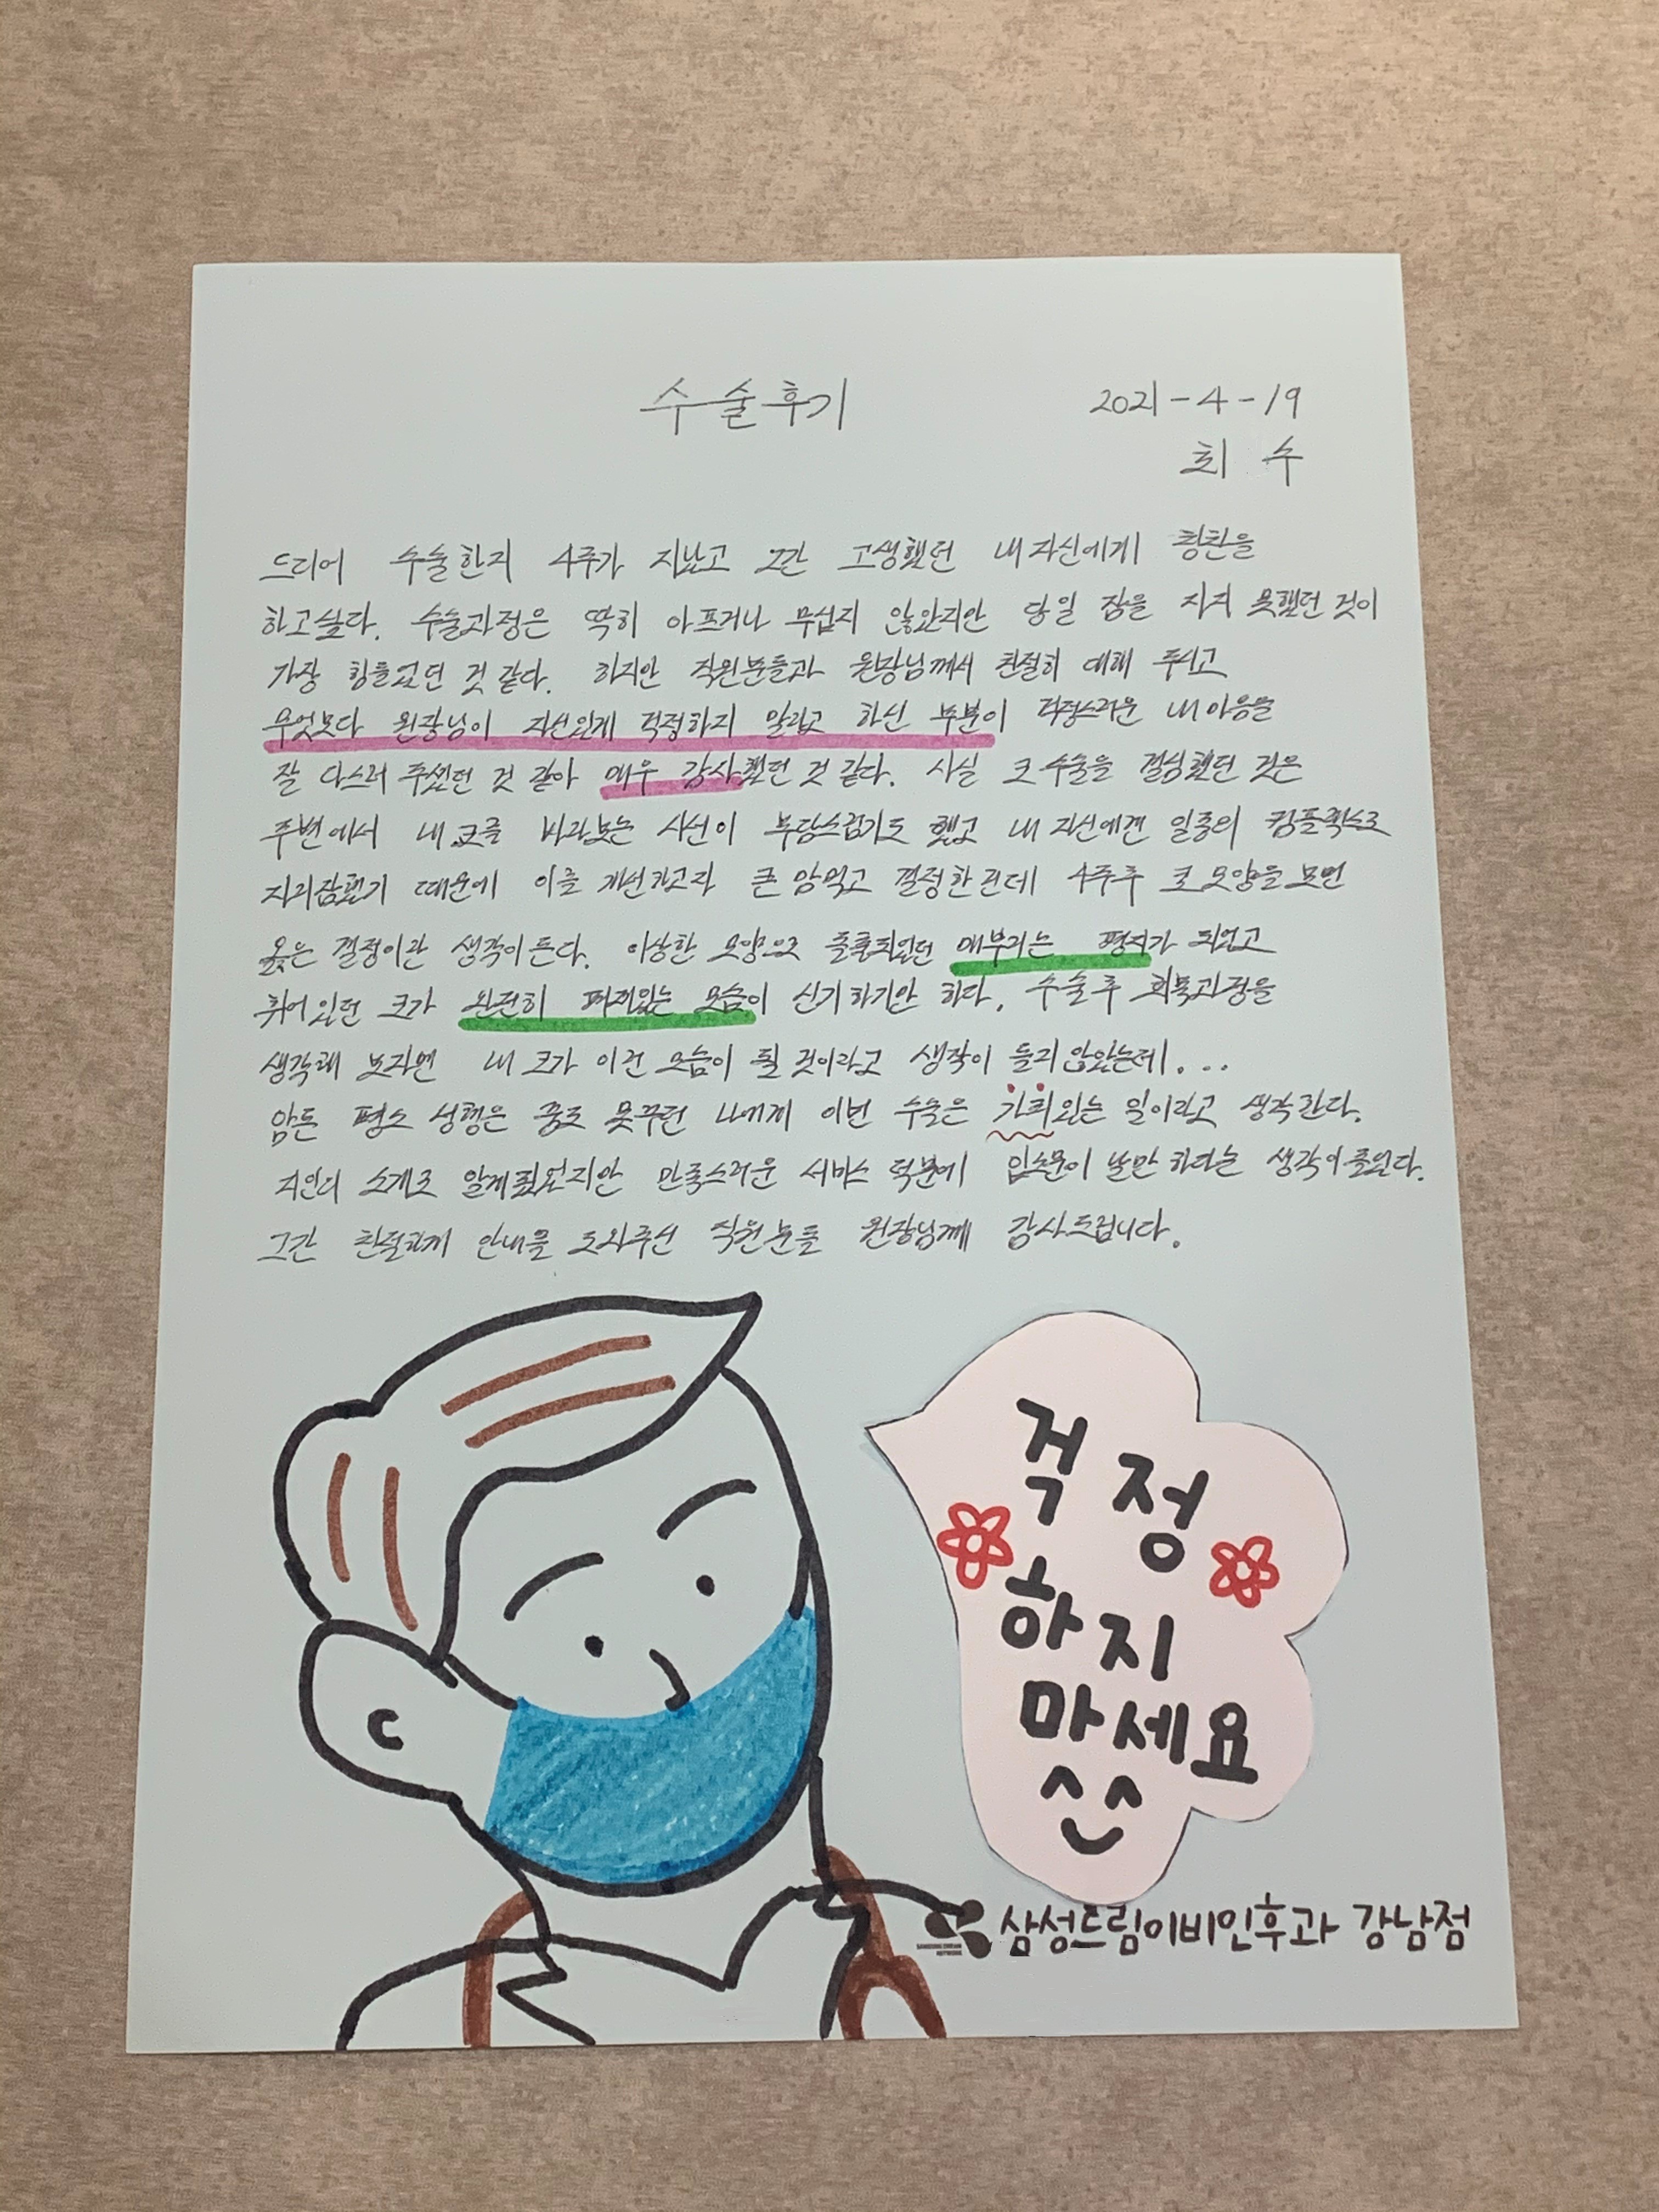 수술후기
2021-4-19
최 수
드디어 수술한지 4주가 지났고 그간 고생했던 내 자신에게 칭찬을
하고싶다. 수술과정은 딱히 아프거나 무섭지 않았지만 당일 잠을 자지 못했던 것이
가장 힘들었던 것 같다. 하지만 직원분들과 원장님께서 친절히 대해 주시고
무엇보다 원장님이 자신있게 걱정하지 말라고 하신 부분이 걱정스러운 내 마음을
잘 다스려 주셨던 것 같아 매우 감사했던 것 같다. 사실 코 수술을 결심했던 것은
주변에서 내 코를 바라보는 시선이 부담스럽기도 했고 내 자신에겐 일종의 컴플렉스로
자리잡혔기 때문에 이를 개선하고자 큰 맘먹고 결정한건데 4주후 코 모양을 보면
옳은 결정이란 생각이 든다. 이상한 모양으로 돌출되었던 매부리는 평지가 되었고
휘어 있던 코가 완전히 펴져있는 모습이 신기하기만 하다. 수술후 회복과정을
생각해 보자면 내 코가 이런 모습이 될 것이라고 생각이 들지 않았는데...
암튼 평소 성형은 꿈도 못꾸던 나에게 이번 수술은 가치있는 일이라고 생각한다.
지인의 소개로 알게됐었지만 만족스러운 서비스 덕분에 입소문이 날만 하다는 생각이 들었다.
그간 친절하게 안내를 도와주신 직원분들 원장님께 감사드립니다.
걱정
하지
마세요
삼성드림이비인후과 강남점